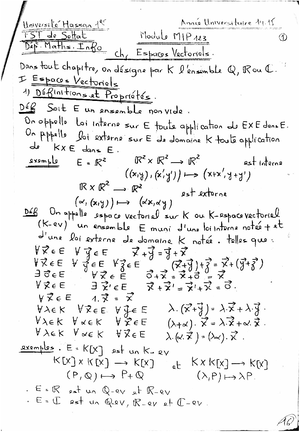 Université Hassan 1er Année Universitaire 14.15
FST de Settat Module MIP 123 ①
Dép Maths-Info
ch, Espaces Vectoriels.
Dans tout chapitre, on désigne par K l'ensemble Q, R ou C.
I Espaces Vectoriels
1) Définitions et Propriétés.
Déf: Soit E un ensemble non vide.
On appelle loi interne sur E toute application de E×E dans E.
On appelle loi externe sur E de domaine K toute application
de K×E dans E.
exemple E = ℝ² ℝ² × ℝ² → ℝ² est interne
((x,y),(x',y')) ↦ (x+x', y+y')
ℝ × ℝ² → ℝ² est externe
(α,(x,y)) ↦ (αx,αy)
Déf: On appelle espace vectoriel sur K ou K-espace vectoriel
(K-ev) un ensemble E muni d'une loi interne notée + et
d'une loi externe de domaine K notée . telles que:
∀x⃗∈E ∀y⃗∈E x⃗+y⃗=y⃗+x⃗
∀x⃗∈E ∀y⃗∈E ∀z⃗∈E (x⃗+y⃗)+z⃗=x⃗+(y⃗+z⃗)
∃o⃗∈E ∀x⃗∈E o⃗+x⃗=x⃗+o⃗=x⃗
∀x⃗∈E ∃x⃗'∈E x⃗+x⃗'=x⃗'+x⃗=o⃗
∀x⃗∈E 1.x⃗=x⃗
∀λ∈K ∀x⃗∈E ∀y⃗∈E λ.(x⃗+y⃗)=λ.x⃗+λ.y⃗
∀λ∈K ∀α∈K ∀x⃗∈E (λ+α).x⃗=λ.x⃗+α.x⃗
∀λ∈K ∀α∈K ∀x⃗∈E λ.(α.x⃗)=(λα).x⃗
exemples . E = K[X] est un K-ev
K[X] × K[X] → K[X] et K × K[X] → K[X]
(P,Q) ↦ P+Q (λ,P) ↦ λP
. E = ℝ est un Q-ev et ℝ-ev
. E = ℂ est un Q-ev, ℝ-ev et ℂ-ev